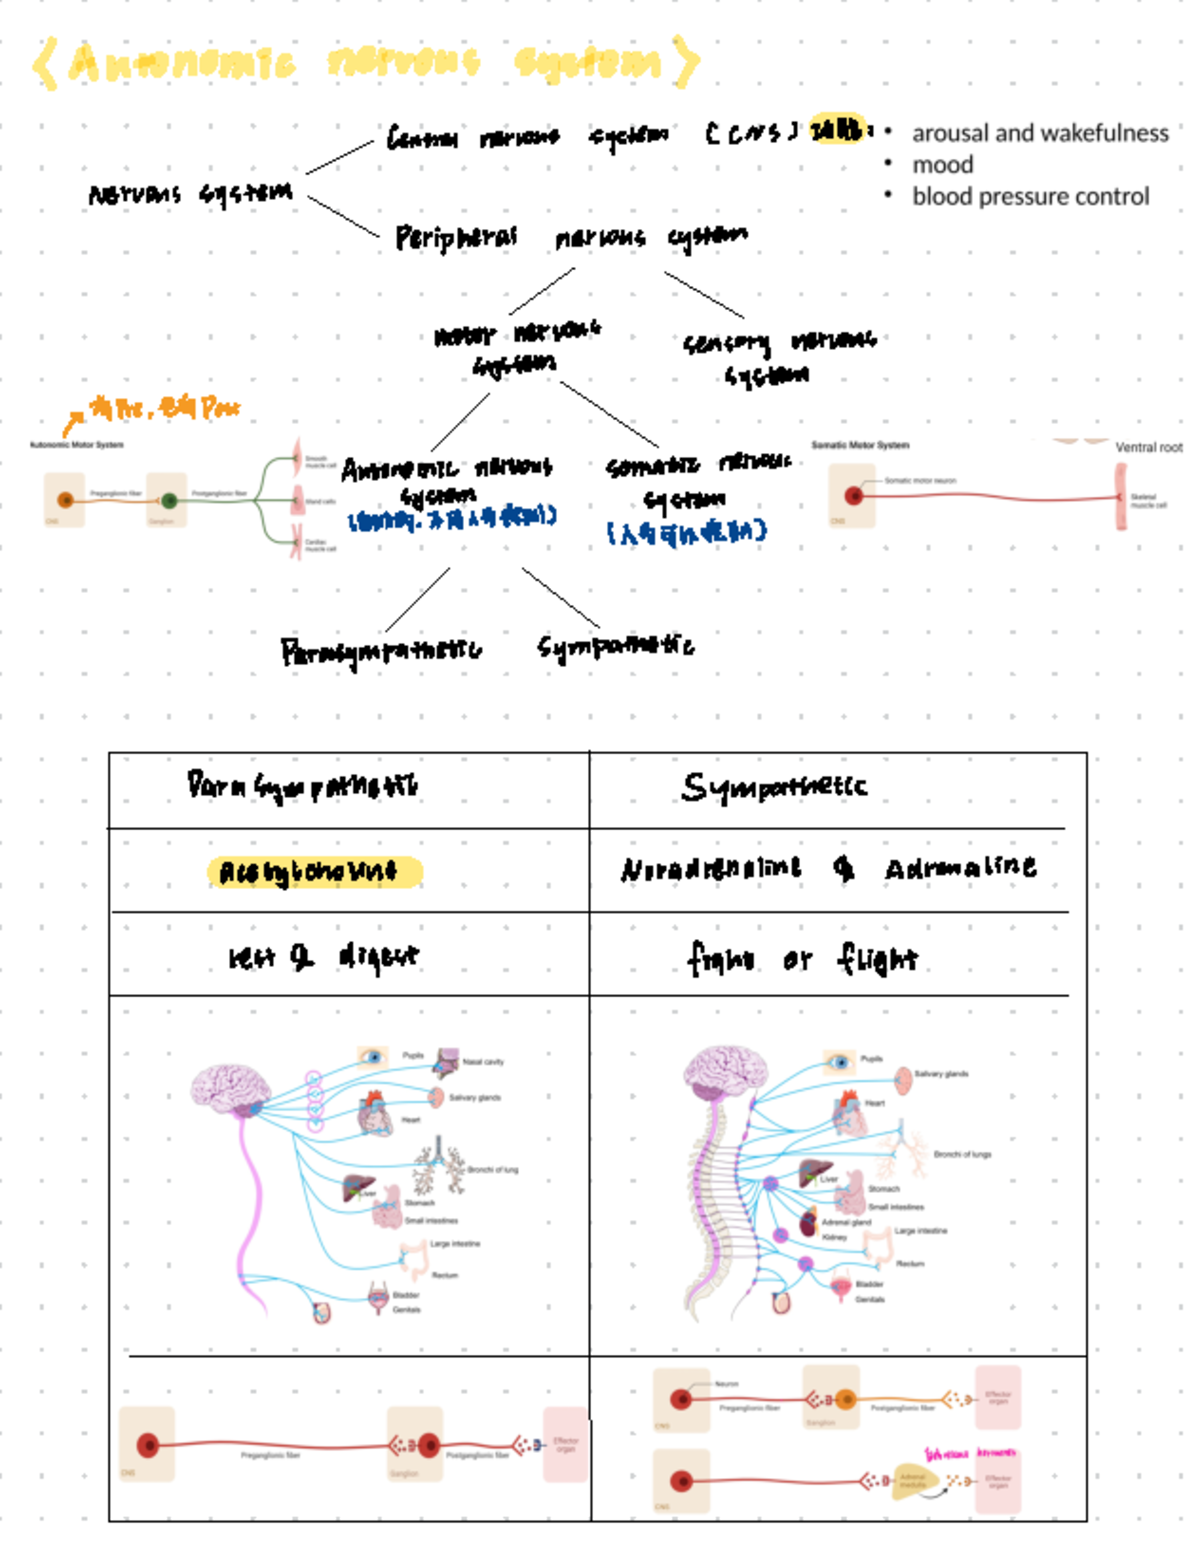 <Autonomic nervous system>
Central nervous system (CNS)
• arousal and wakefulness
• mood
• blood pressure control
Nervous system
Peripheral nervous system
motor nervous
system
sensory nervous
system
Autonomic Motor System
Preganglionic fiber
Postganglionic fiber
CNS
Ganglion
Smooth
muscle cell
Gland cells
Cardiac
muscle cell
Autonomic nervous
system
somatic nervous
system
Somatic Motor System
Ventral root
Somatic motor neuron
CNS
Skeletal
muscle cell
Parasympathetic
Sympathetic
Parasympathetic
Sympathetic
Noradrenaline & Adrenaline
rest & digest
fight or flight
Pupils
Nasal cavity
Salivary glands
Heart
Bronchi of lung
Liver
Stomach
Small intestines
Large intestine
Rectum
Bladder
Genitals
Pupils
Salivary glands
Heart
Bronchi of lungs
Liver
Stomach
Small intestines
Adrenal gland
Kidney
Large intestine
Rectum
Bladder
Genitals
CNS
Preganglionic fiber
Ganglion
Postganglionic fiber
Effector
organ
Neuron
CNS
Preganglionic fiber
Ganglion
Postganglionic fiber
Effector
organ
CNS
Adrenal
medulla
Effector
organ